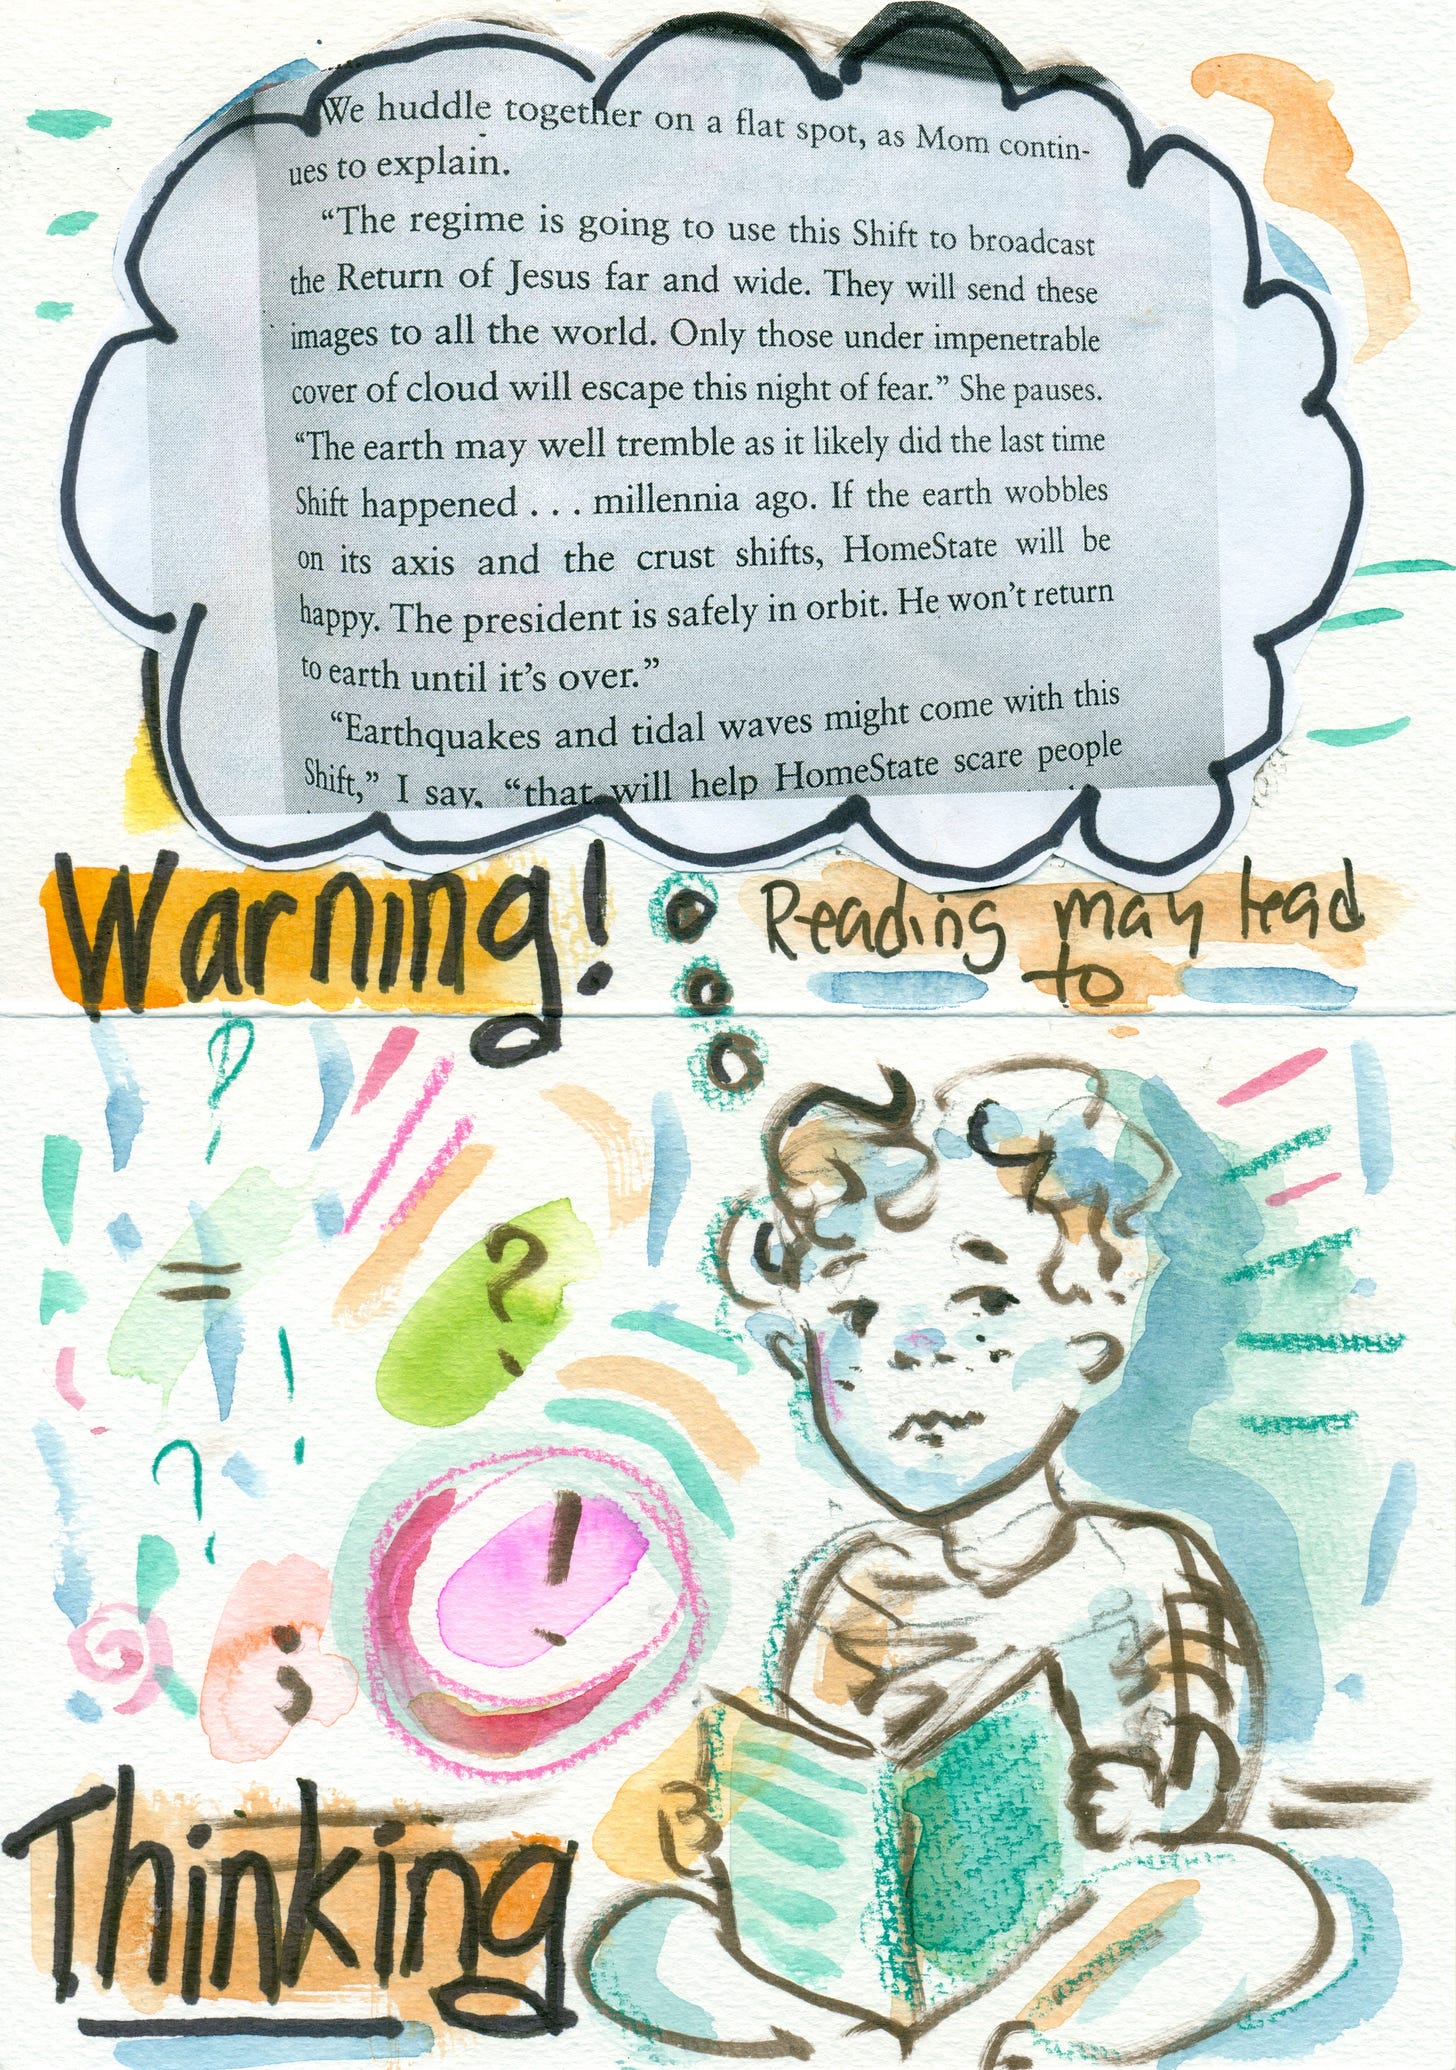 We huddle together on a flat spot, as Mom contin-
ues to explain.
“The regime is going to use this Shift to broadcast
the Return of Jesus far and wide. They will send these
images to all the world. Only those under impenetrable
cover of cloud will escape this night of fear.” She pauses.
“The earth may well tremble as it likely did the last time
Shift happened . . . millennia ago. If the earth wobbles
on its axis and the crust shifts, HomeState will be
happy. The president is safely in orbit. He won’t return
to earth until it’s over.”
“Earthquakes and tidal waves might come with this
Shift,” I say, “that will help HomeState scare people
Warning!
Reading may lead
to
?
=
?
!
?
!
;
Thinking